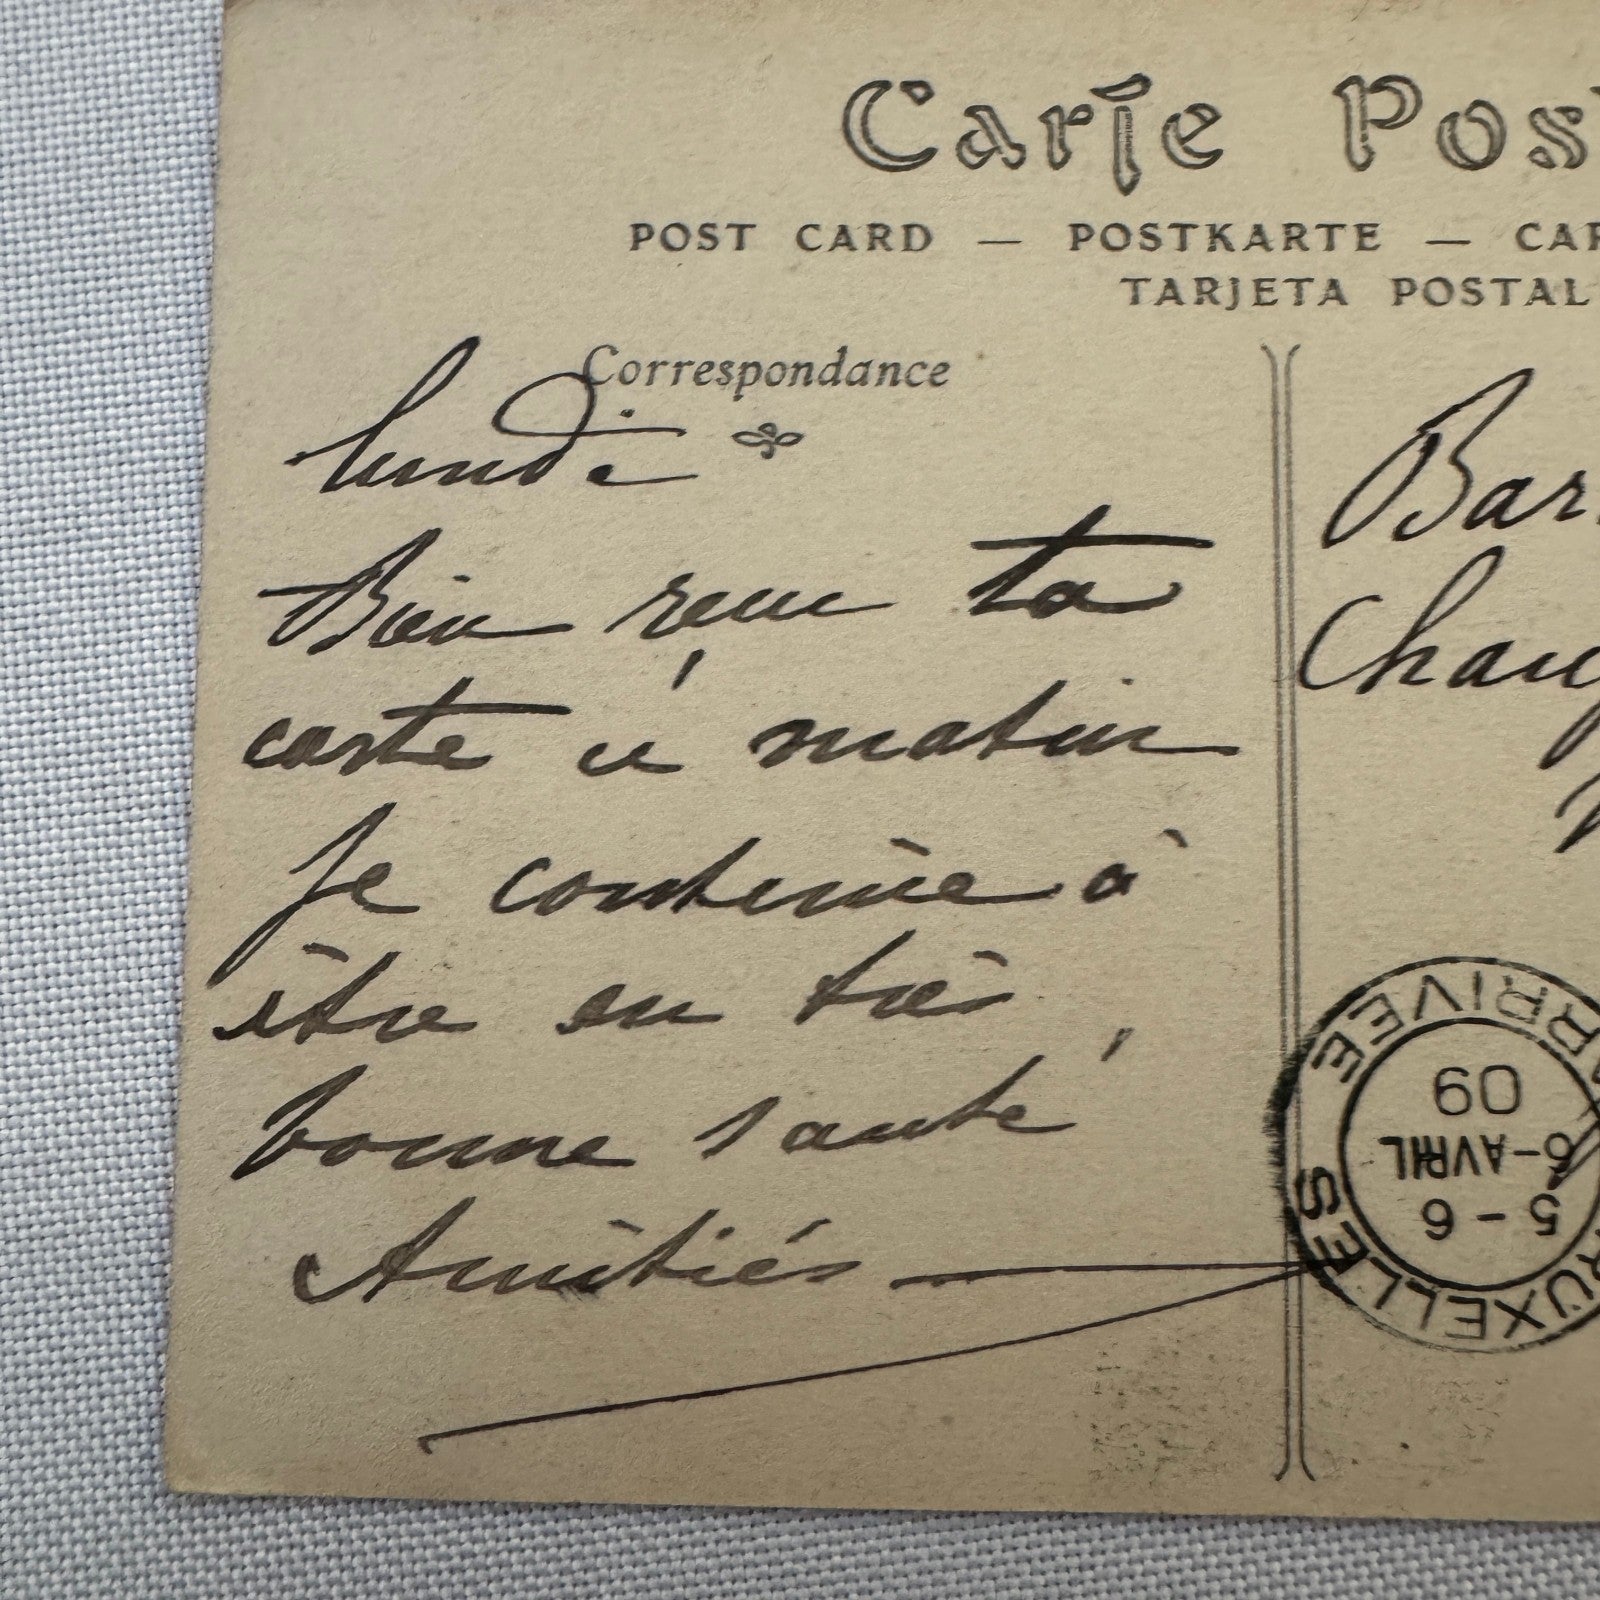 Carte Pos
POST CARD — POSTKARTE — CAR
TARJETA POSTAL
Correspondance
lundi
Bien reçu ta
carte ce matin
Je continue à
être en très
bonne santé
Amitiés
Bar
Chau
BRUXELLES ARRIVEE
5-6
6-AVRIL
09